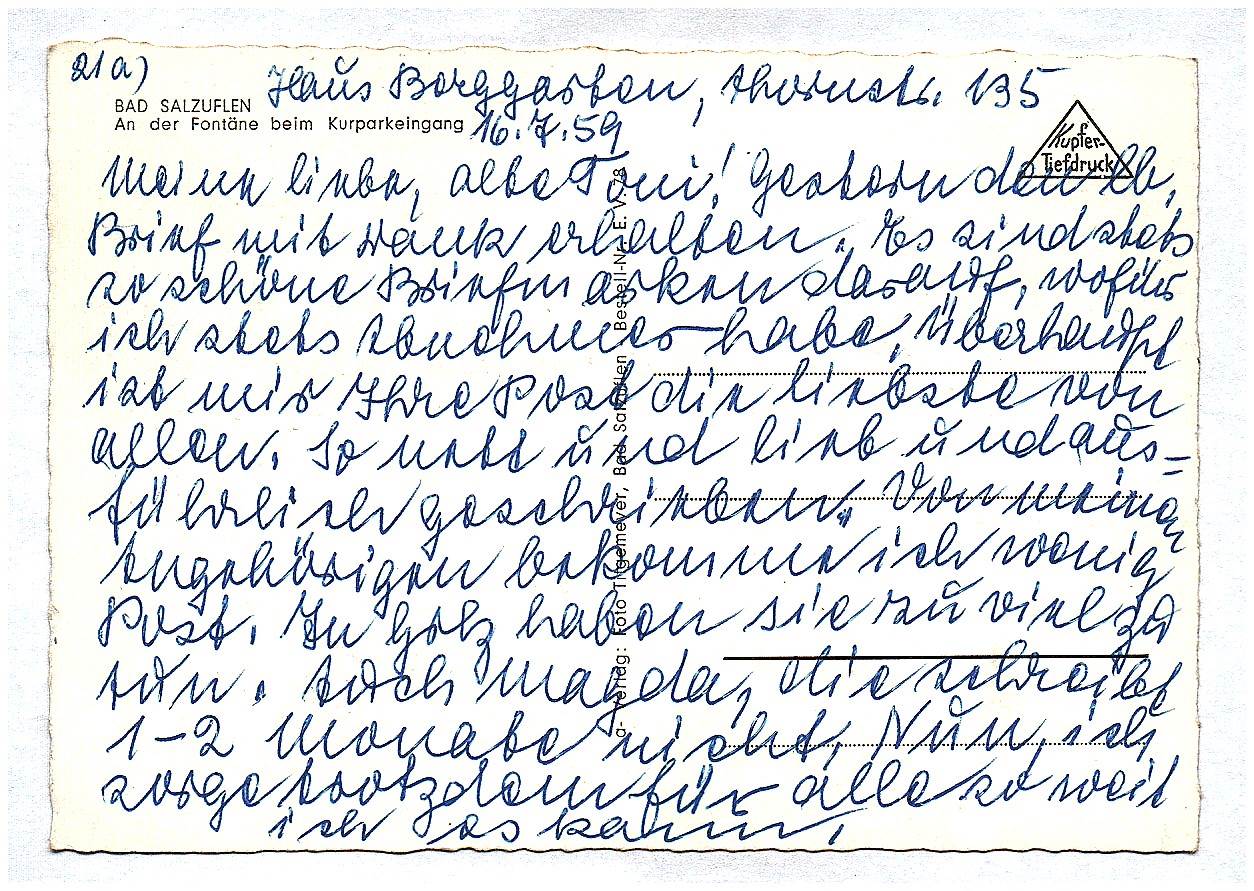 21a)
Haus Borggarten, Thornstr. 135
BAD SALZUFLEN
An der Fontäne beim Kurparkeingang
16.7.59
Kupfer-
Tiefdruck
Meine liebe, alte Toni! Gestern den lb.
Brief mit Dank erhalten. Es sind stets
so schöne Briefmarken darauf, wofür
ich stets Abnehmer habe, überhaupt
ist mir Ihre Post die liebste von
allen. So nett und lieb und aus-
führlich geschrieben. Von meinen
Angehörigen bekomme ich wenig
Post. In haben sie zu viel zu
tun. Auch Magda, die schreibt
1-2 Monate nicht. Nun, ich
sorge trotzdem für alle so weit
ich es kann.
a- Verlag: Foto Tilgemeyer, Bad Salzuflen Bestell-Nr. E. V. 28